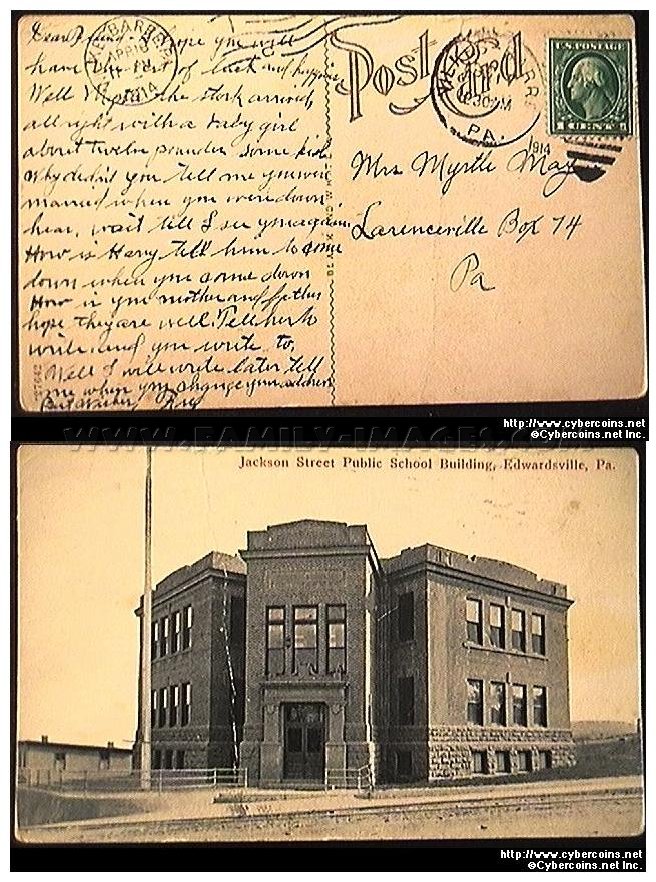 WILKES-BARRE
APR 10
1914
Post Card
WILKES-BARRE
PA.
1914
U.S. POSTAGE
1 CENT
Dear Friend. I hope you will
have the best of luck and happiness
Well the stork arrived
all right with a baby girl
about twelve pounder some kid
Why didn't you tell me you were
married when you were down
hear, wait till I see you again
How is Harry tell him to come
down when you come down
How is you mother and father
hope they are well. Tell her to
write and you write to,
Well I will write later tell
me when you change your address
Best wishes
Mrs Myrtle May
Larenceville Box 74
Pa
27642
http://www.cybercoins.net
©Cybercoins.net Inc.
WWW.FAMILY-IMAGES.CO
Jackson Street Public School Building, Edwardsville, Pa.
http://www.cybercoins.net
©Cybercoins.net Inc.